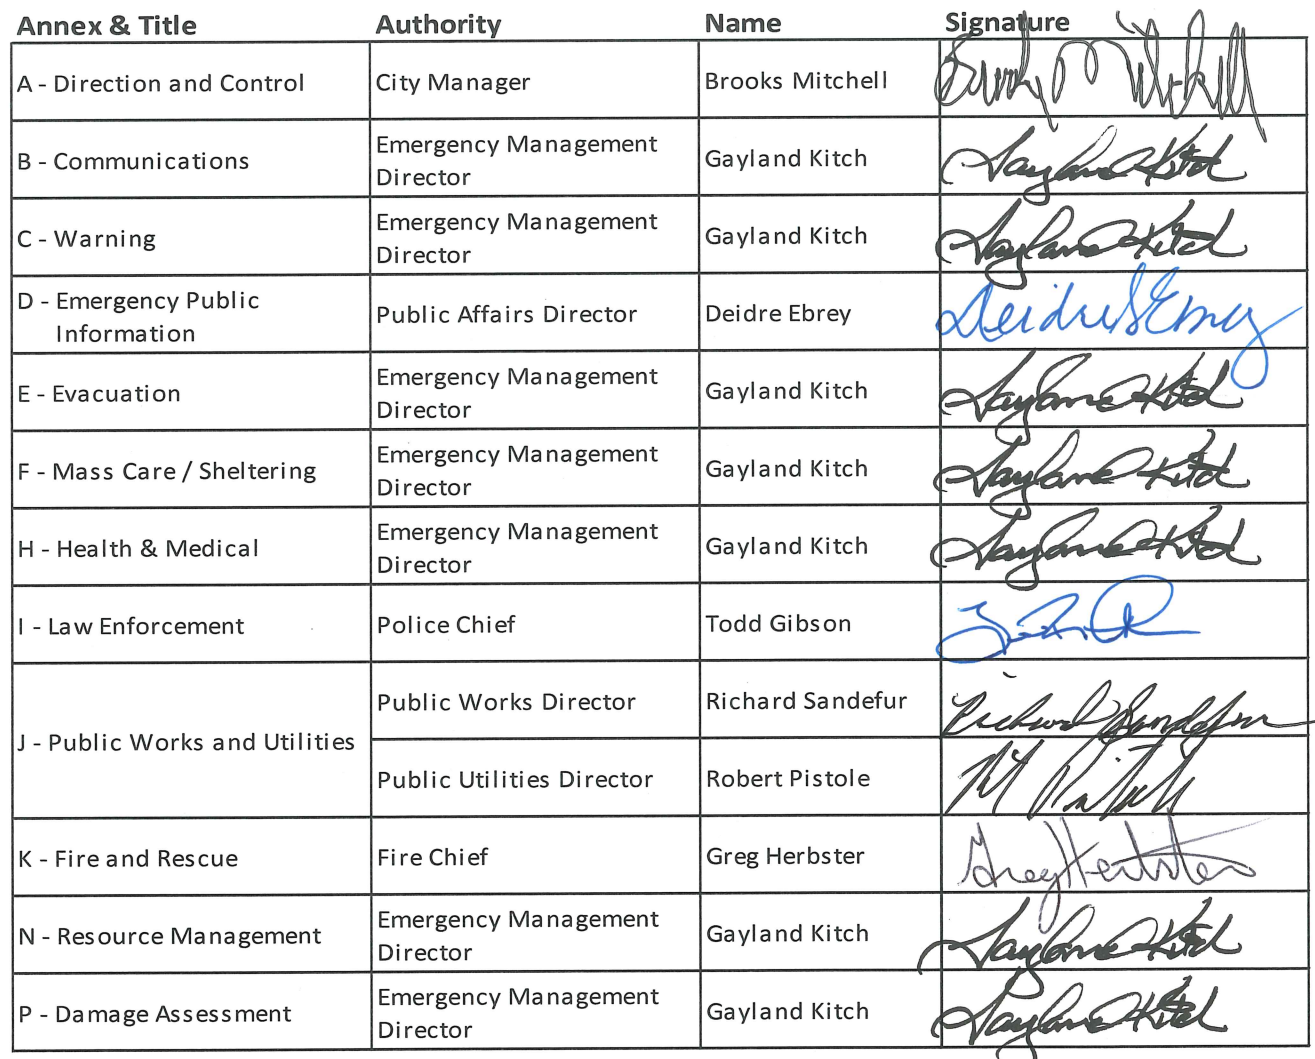 Annex & Title Authority Name Signature
A - Direction and Control City Manager Brooks Mitchell Brooks Mitchell
B - Communications Emergency Management Director Gayland Kitch Gayland Kitch
C - Warning Emergency Management Director Gayland Kitch Gayland Kitch
D - Emergency Public Information Public Affairs Director Deidre Ebrey Deidre Ebrey
E - Evacuation Emergency Management Director Gayland Kitch Gayland Kitch
F - Mass Care / Sheltering Emergency Management Director Gayland Kitch Gayland Kitch
H - Health & Medical Emergency Management Director Gayland Kitch Gayland Kitch
I - Law Enforcement Police Chief Todd Gibson
J - Public Works and Utilities Public Works Director Richard Sandefur Richard Sandefur
Public Utilities Director Robert Pistole
K - Fire and Rescue Fire Chief Greg Herbster Greg Herbster
N - Resource Management Emergency Management Director Gayland Kitch Gayland Kitch
P - Damage Assessment Emergency Management Director Gayland Kitch Gayland Kitch